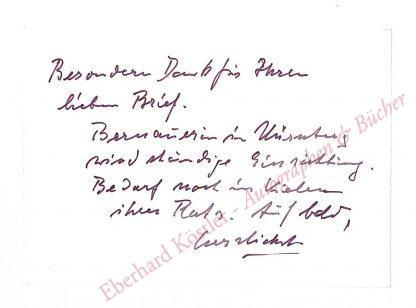 Besondern Dank für Ihren
lieben Brief.
Bernauerin in Nürnberg
wird ständige Einrichtung.
Bedarf noch in vielem
ihres Rats. Auf bald,
herzlichst
Eberhard Köstler - Autographen & Bücher